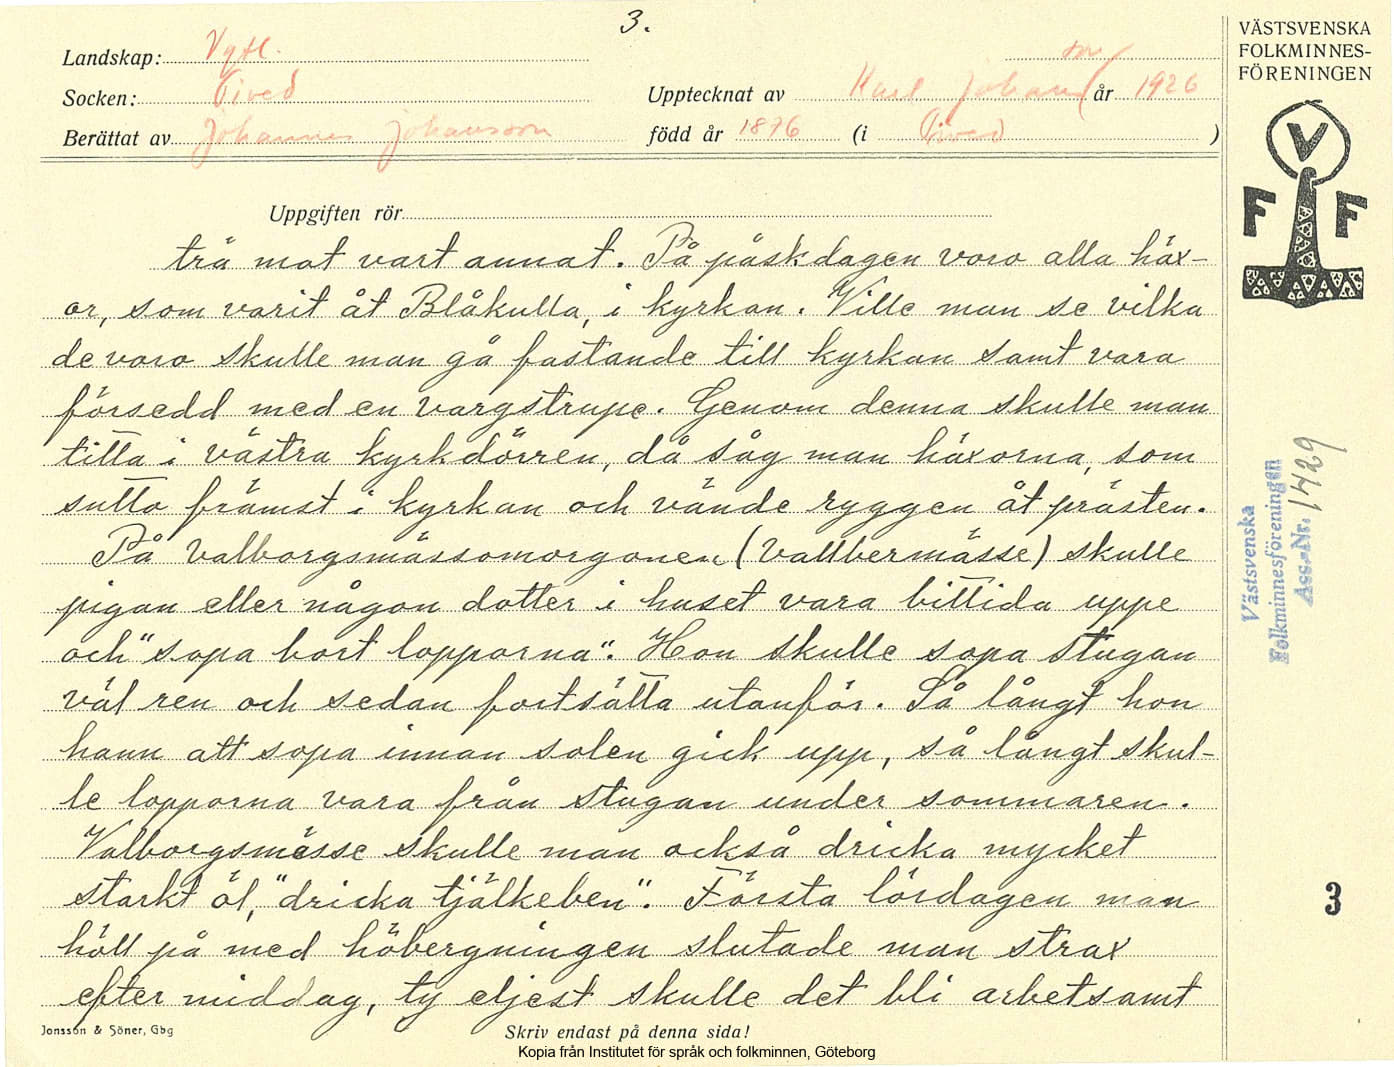 3.
Landskap: Vgtl.
Socken: Tived
Upptecknat av Karl Johansson år 1926
Berättat av Johannes Johansson född år 1876 (i Tived)
Uppgiften rör
trå mot vart annat. På påskdagen voro alla häx-
or, som varit åt Blåkulla, i kyrkan. Ville man se vilka
de voro skulle man gå fastande till kyrkan samt vara
försedd med en vargstrupe. Genom denna skulle man
titta i västra kyrkdörren, då såg man häxorna, som
sutto främst i kyrkan och vände ryggen åt prästen.
På Valborgsmässomorgonen (Vallbermässe) skulle
pigan eller någon dotter i huset vara bittida uppe
och "sopa bort lopporna". Hon skulle sopa stugan
väl ren och sedan fortsätta utanför. Så långt hon
hann att sopa innan solen gick upp, så långt skul-
le lopporna vara från stugan under sommaren.
Valborgsmässe skulle man också dricka mycket
starkt öl, "dricka tjälkeben". Första lördagen man
höll på med höbergningen slutade man strax
efter middag, ty eljest skulle det bli arbetsamt
Jonsson & Söner, Gbg
Skriv endast på denna sida!
Kopia från Institutet för språk och folkminnen, Göteborg
VÄSTSVENSKA
FOLKMINNES-
FÖRENINGEN
V
F F
Västsvenska
Folkminnesföreningen
Acc.-Nr. 1429
3